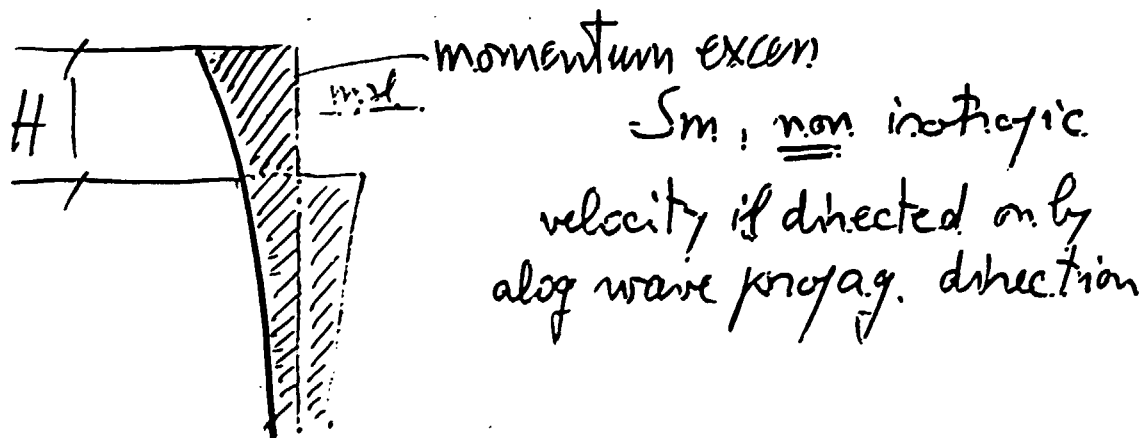 momentum excess
m.w.l.
H
Sm, non isotropic
velocity is directed only
alog wave propag. direction